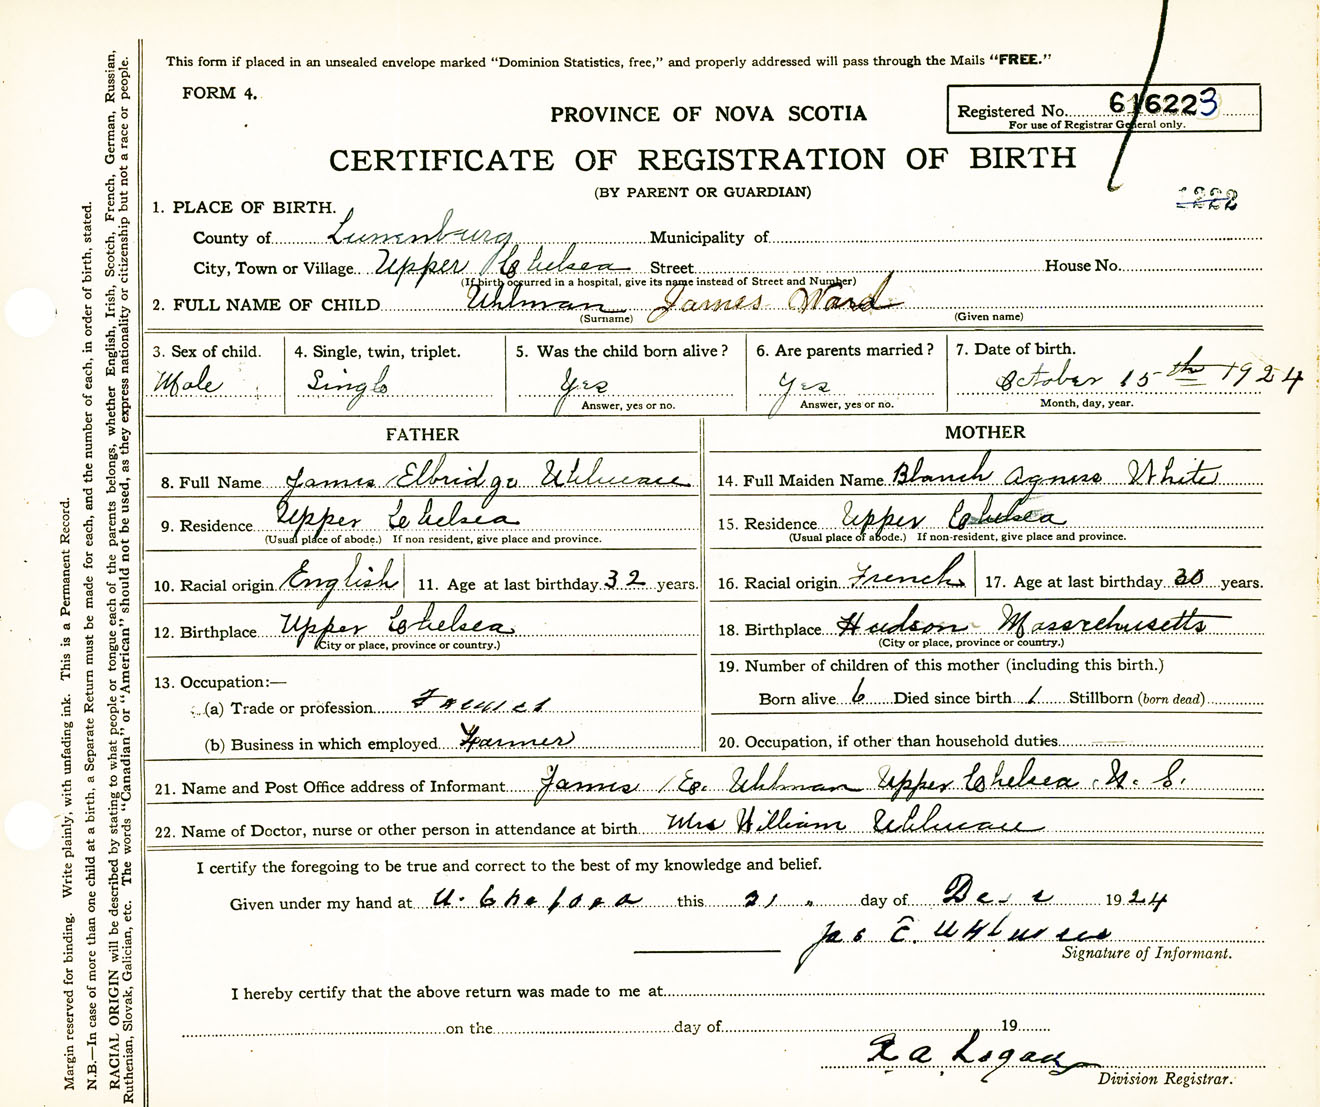 This form if placed in an unsealed envelope marked “Dominion Statistics, free,” and properly addressed will pass through the Mails “FREE.”
FORM 4.
PROVINCE OF NOVA SCOTIA
Registered No. 616223
For use of Registrar General only.
CERTIFICATE OF REGISTRATION OF BIRTH
(BY PARENT OR GUARDIAN)
1222
1. PLACE OF BIRTH.
County of Lunenburg Municipality of
City, Town or Village Upper Chelsea Street House No.
(If birth occurred in a hospital, give its name instead of Street and Number)
2. FULL NAME OF CHILD Uhlman James Ward
(Surname) (Given name)
3. Sex of child. 4. Single, twin, triplet. 5. Was the child born alive? 6. Are parents married? 7. Date of birth.
Male Single Yes Yes October 15th 1924
Answer, yes or no. Answer, yes or no. Month, day, year.
FATHER MOTHER
8. Full Name James Elbridge Uhlman 14. Full Maiden Name Blanch Agness White
9. Residence Upper Chelsea 15. Residence Upper Chelsea
(Usual place of abode.) If non resident, give place and province. (Usual place of abode.) If non-resident, give place and province.
10. Racial origin English 11. Age at last birthday 32 years. 16. Racial origin French 17. Age at last birthday 30 years.
12. Birthplace Upper Chelsea 18. Birthplace Hudson Massrchusetts
(City or place, province or country.) (City or place, province or country.)
13. Occupation:— 19. Number of children of this mother (including this birth.)
(a) Trade or profession Farmer Born alive 6 Died since birth 1 Stillborn (born dead)
(b) Business in which employed Farmer 20. Occupation, if other than household duties
21. Name and Post Office address of Informant James E. Uhlman Upper Chelsea N. S.
22. Name of Doctor, nurse or other person in attendance at birth Mrs William Uhlman
I certify the foregoing to be true and correct to the best of my knowledge and belief.
Given under my hand at U. Chelsea this 21 day of Dec 1924
Jas E. Uhlman
Signature of Informant.
I hereby certify that the above return was made to me at
on the day of 19
A. Logan
Division Registrar.
Margin reserved for binding. Write plainly, with unfading ink. This is a Permanent Record.
N.B.—In case of more than one child at a birth, a Separate Return must be made for each, and the number of each, in order of birth, stated.
RACIAL ORIGIN will be described by stating to what people or tongue each of the parents belongs, whether English, Irish, Scotch, French, German, Russian,
Ruthenian, Slovak, Galician, etc. The words “Canadian” or “American” should not be used, as they express nationality or citizenship but not a race or people.